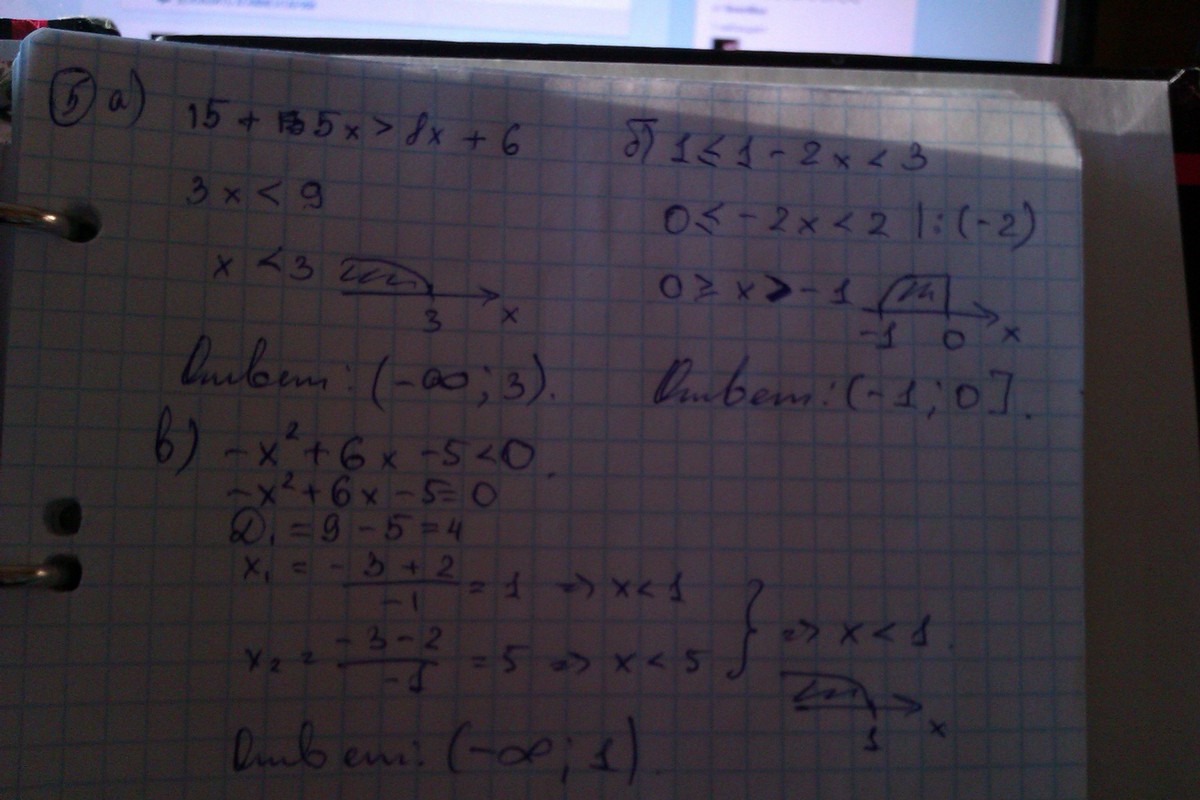 5 а)
15 + 5x > 8x + 6
3x < 9
x < 3
3 x
Ответ: (-∞; 3).
б) 1 ≤ 1 - 2x < 3
0 ≤ -2x < 2 |:(-2)
0 ≥ x > -1
-1 0 x
Ответ: (-1; 0].
в) -x² + 6x - 5 < 0.
-x² + 6x - 5 = 0
D₁ = 9 - 5 = 4
x₁ = (-3 + 2)/(-1) = 1 => x < 1
x₂ = (-3 - 2)/(-1) = 5 => x < 5 } => x < 1.
1 x
Ответ: (-∞; 1).